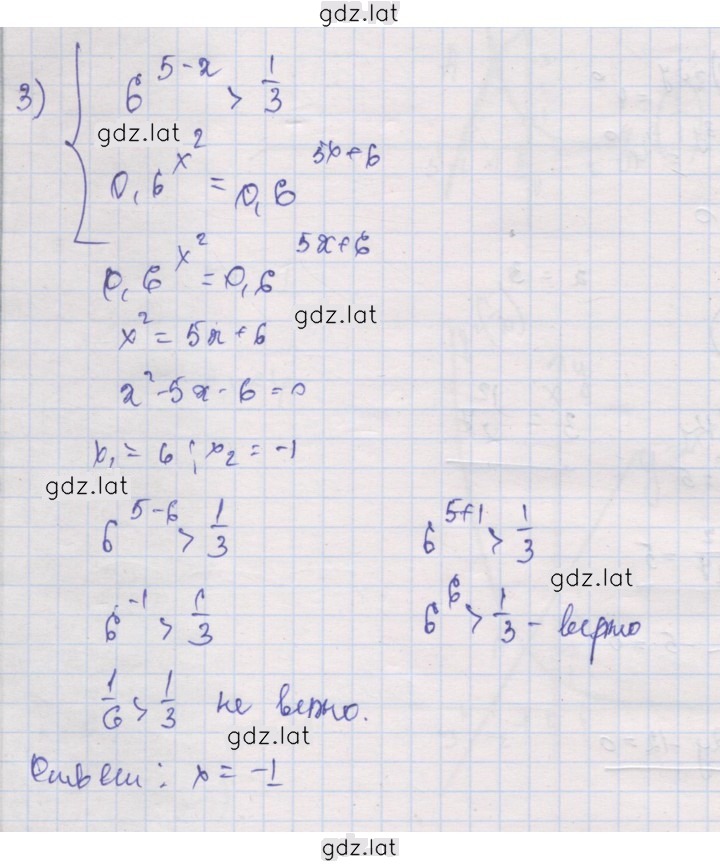 gdz.lat
3) { 6^(5-x) > 1/3
gdz.lat
0,6^(x^2) = 0,6^(5x+6)
0,6^(x^2) = 0,6^(5x+6)
gdz.lat
x^2 = 5x + 6
x^2 - 5x - 6 = 0
x₁ = 6 ; x₂ = -1
gdz.lat
6^(5-6) > 1/3
6^(5+1) > 1/3
gdz.lat
6^(-1) > 1/3
6^6 > 1/3 - верно
1/6 > 1/3 не верно.
gdz.lat
Ответ: x = -1
gdz.lat